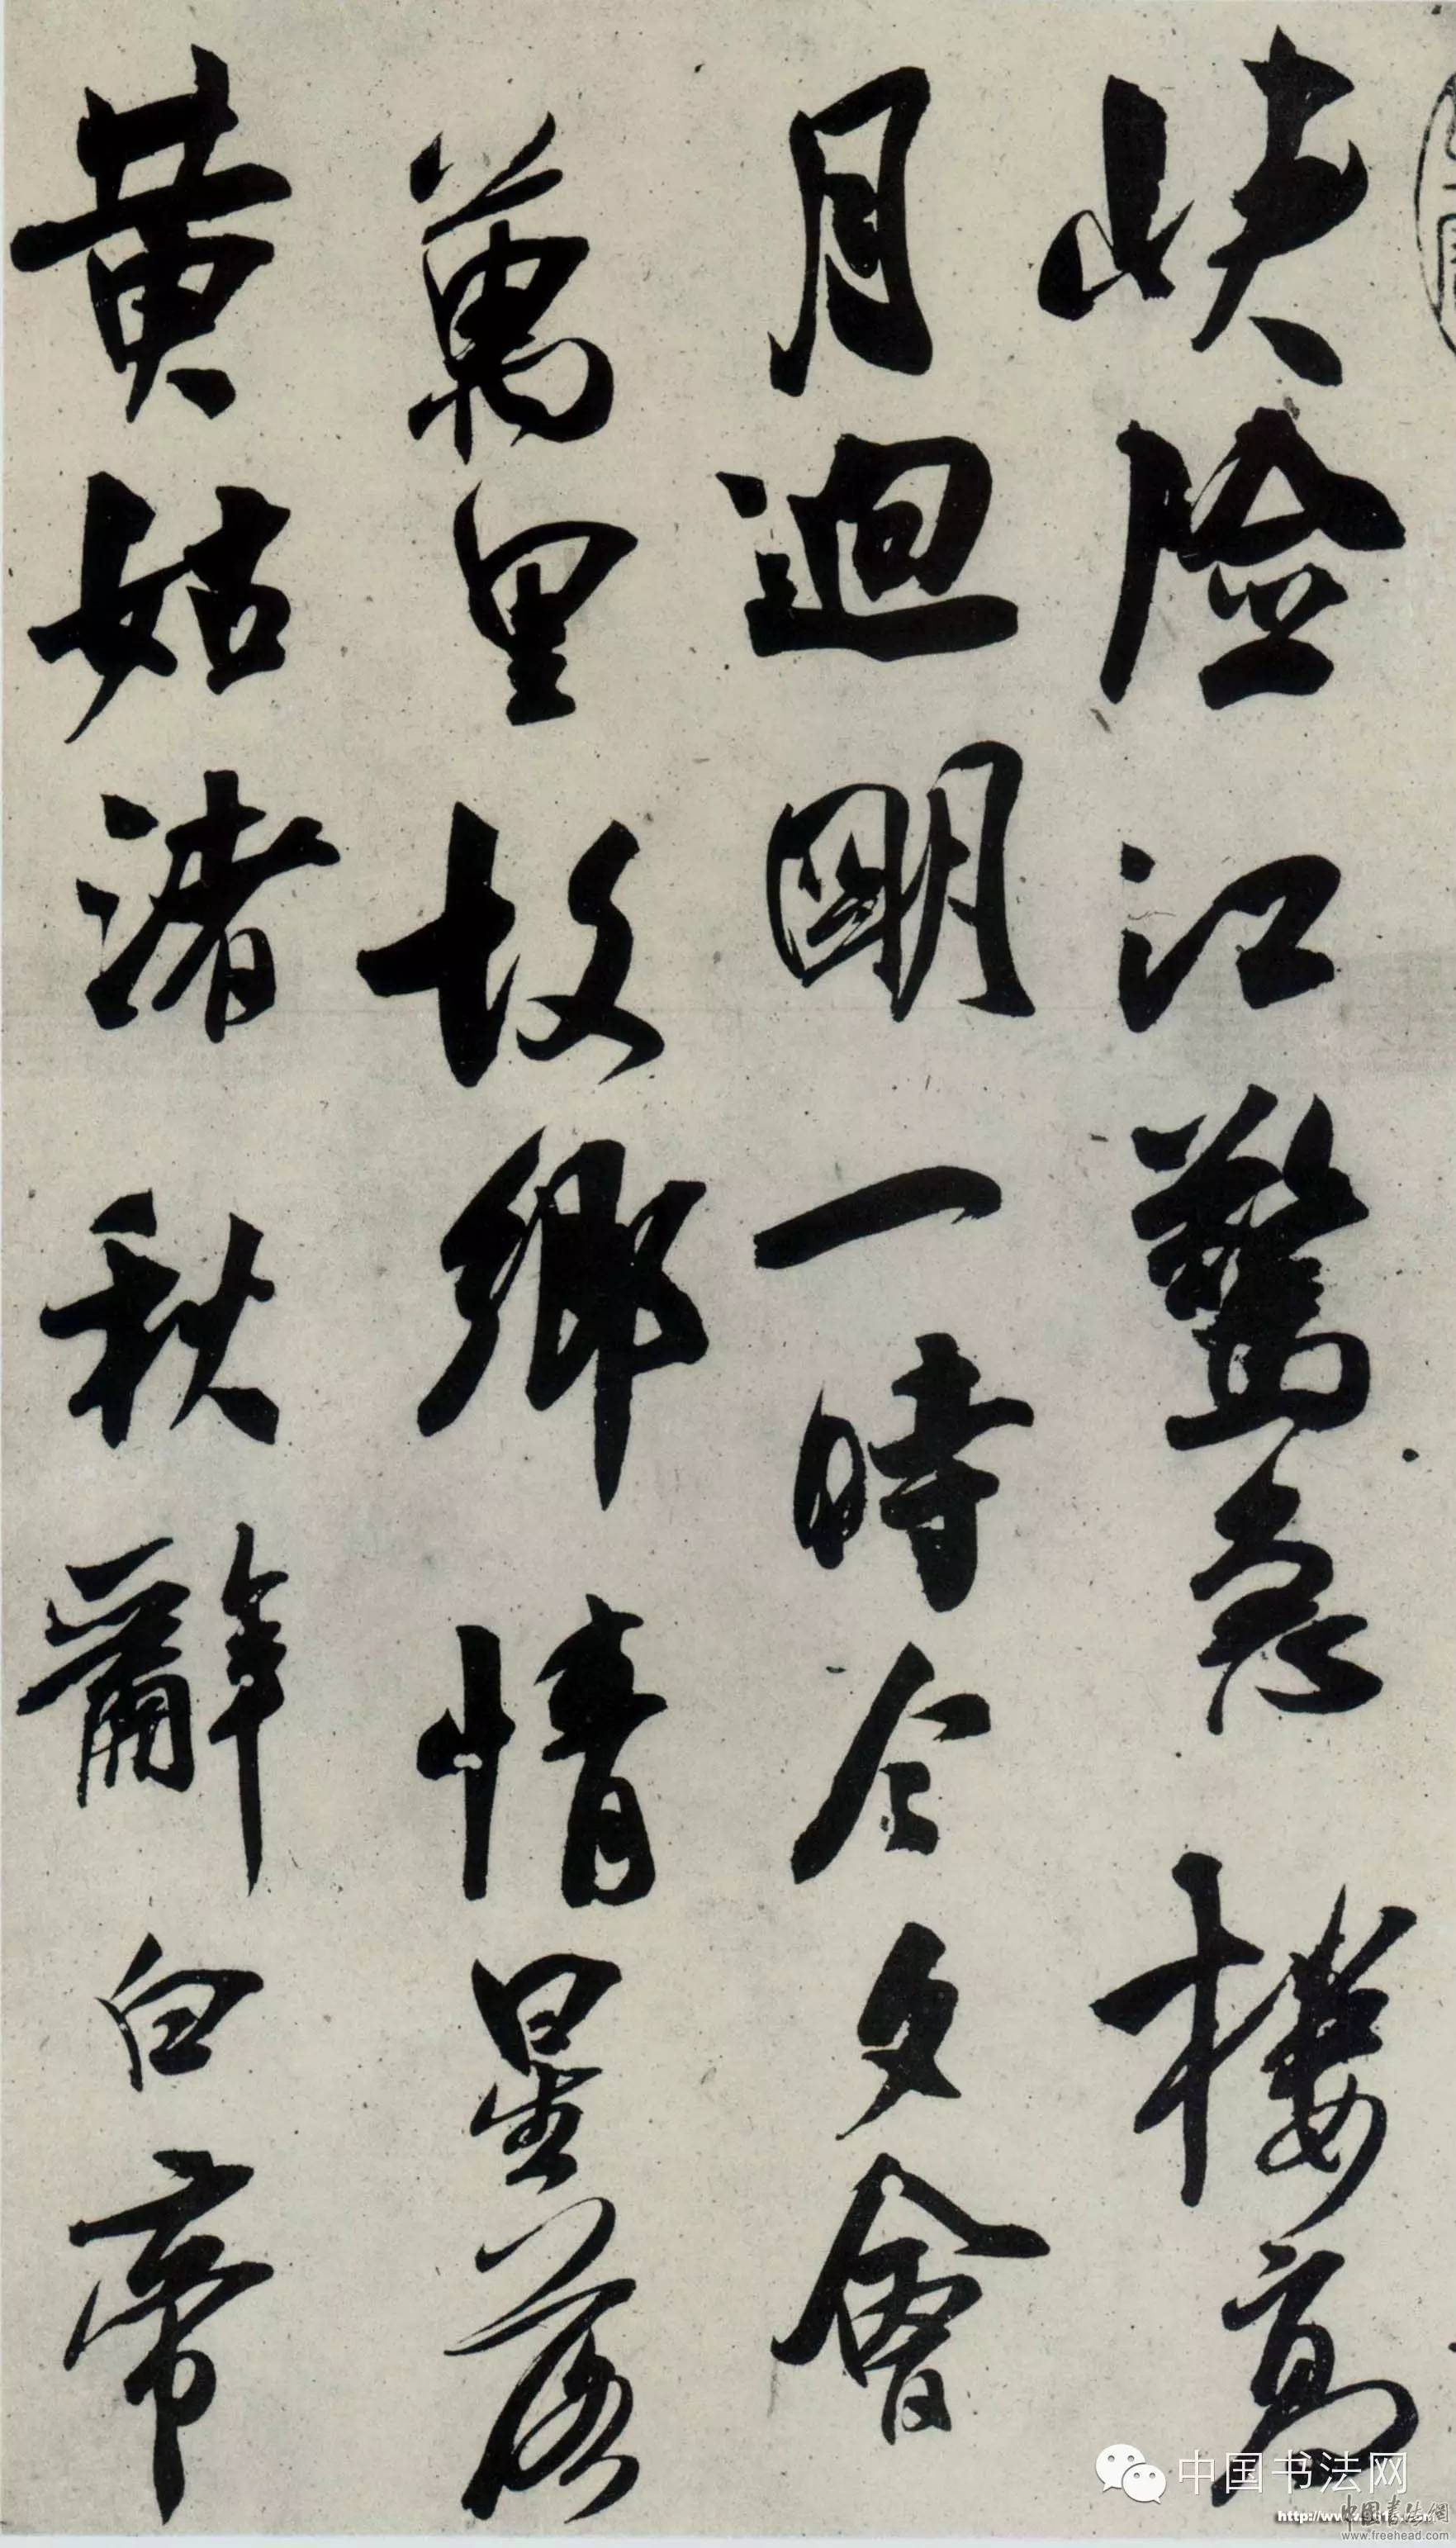 峽險江驚急樓高
月迥明一時今夕會
萬里故鄉情星落
黃姑渚秋辭白帝
中国书法网
中国书法網
www.freehead.com